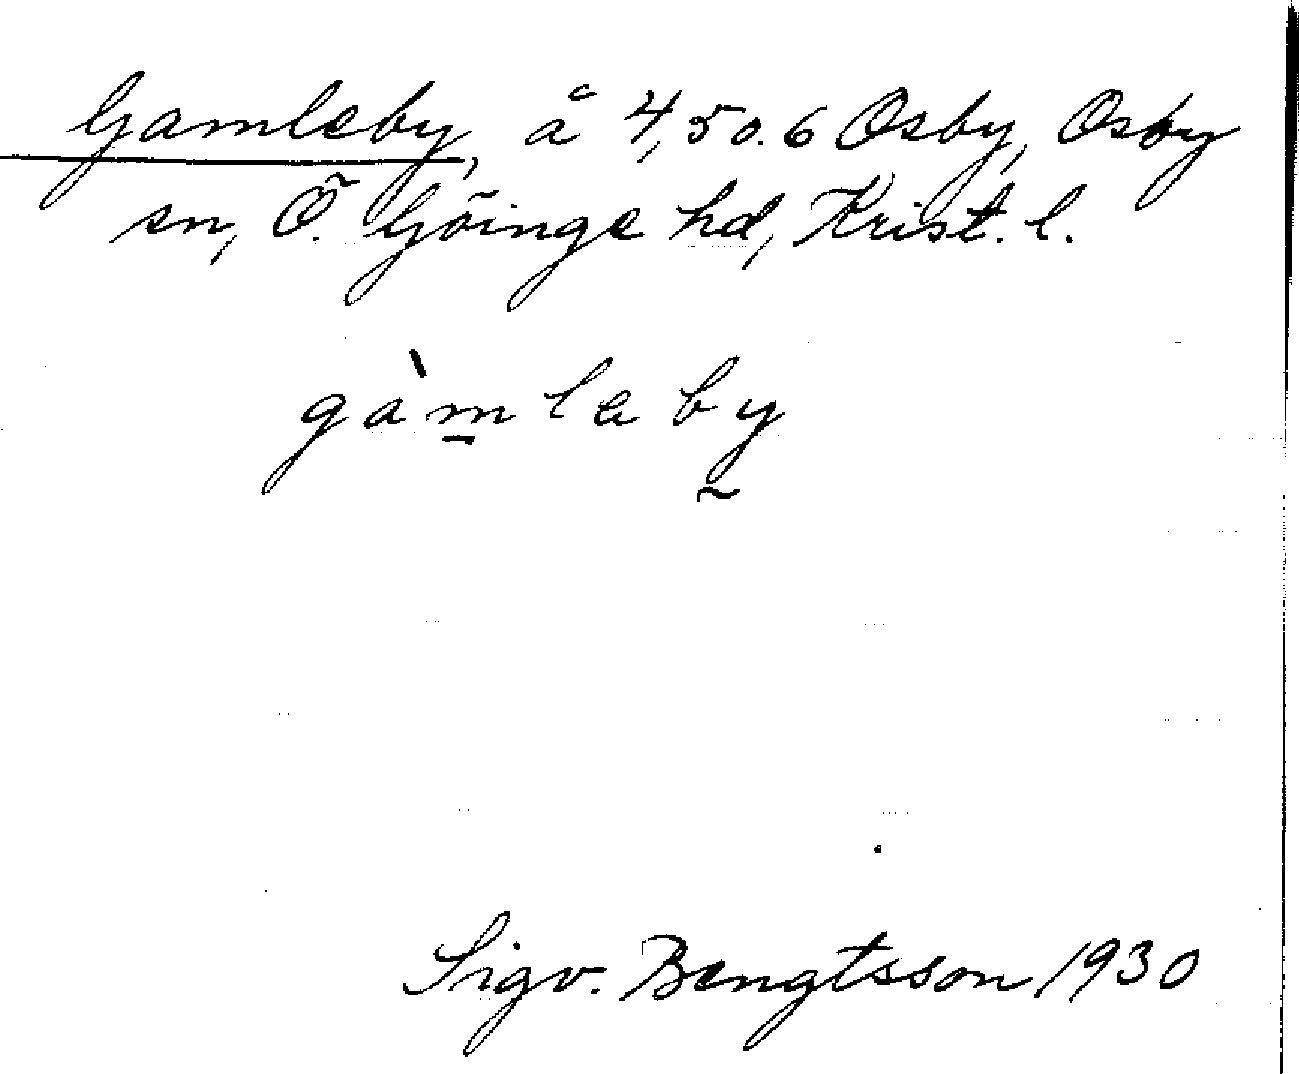 Gamleby, å 4,5 o. 6 Osby, Osby
sn, Ö. Göinge hd, Krist. l.
gàm̲leby̰
Sigv. Bengtsson 1930